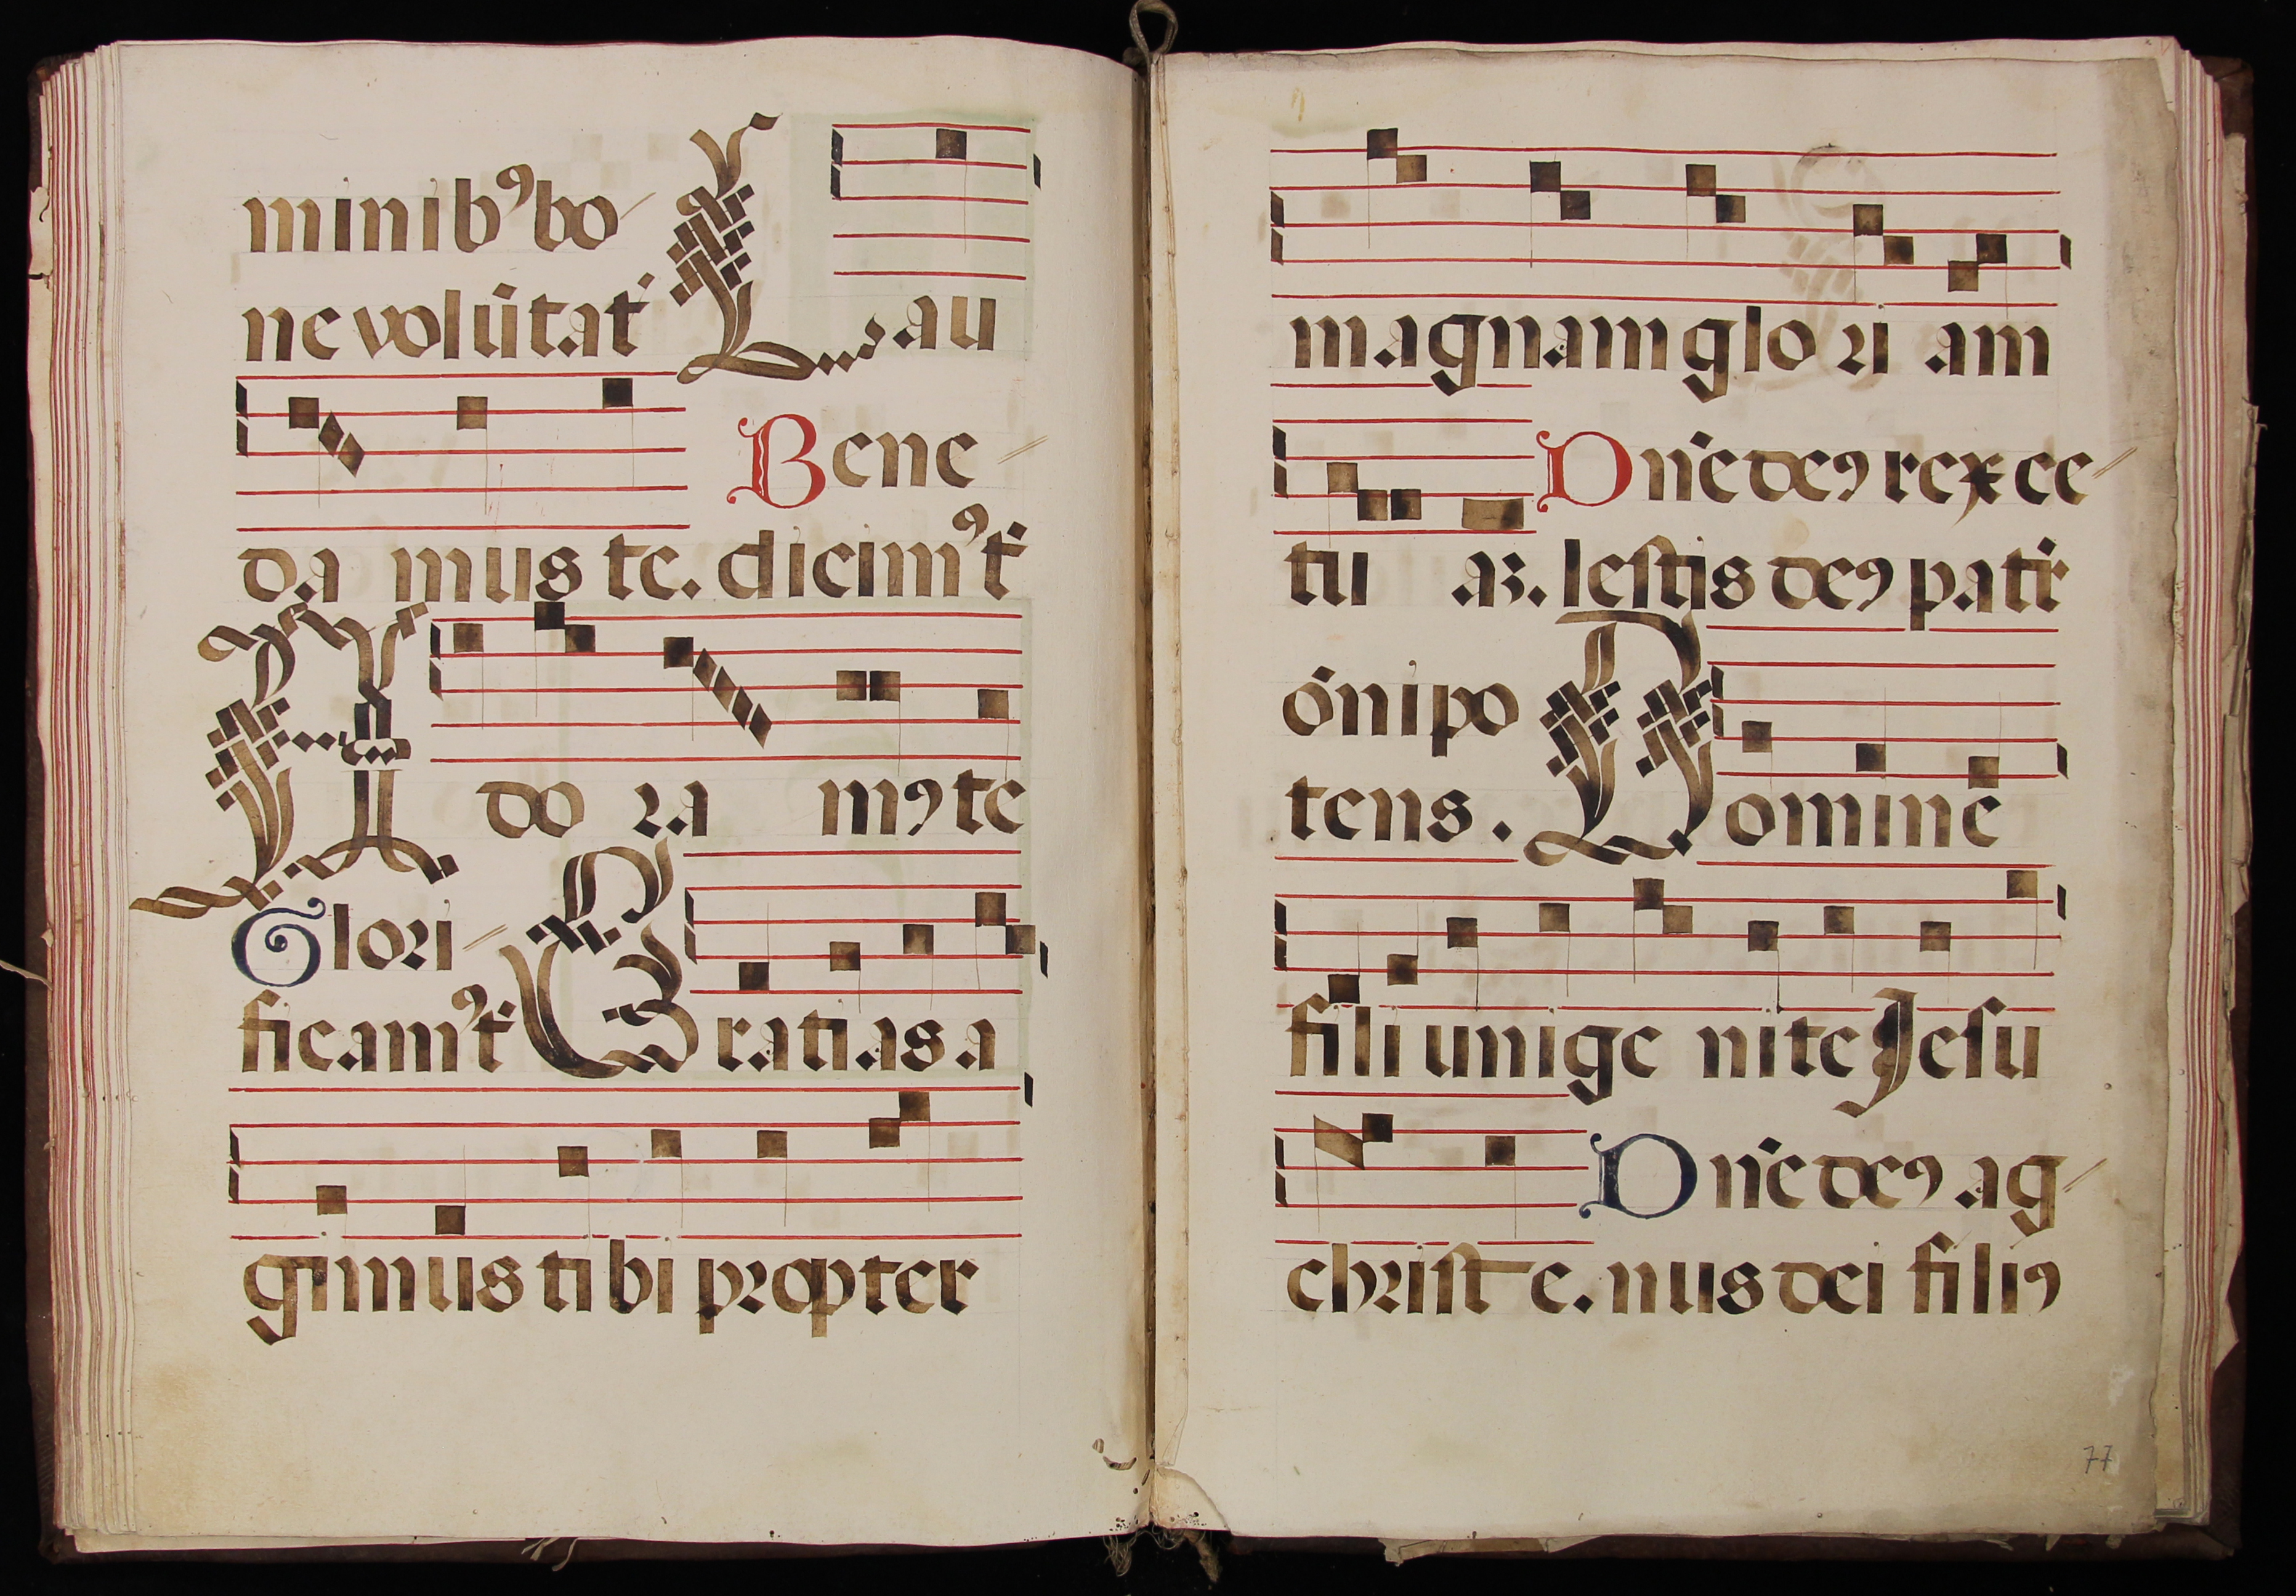 minibꝰ bo
ne volūtat Lau
Bene
da mus te. dicimꝰ t
Ado ra mꝰ te
Glori
ficamꝰ t Gratias a
gimus tibi propter
magnam glo ri am
Dn̄e deꝰ rex ce
tu aȝ. lestis deꝰ patr
ōnipo
tens. Domine
fili unige nite Jesu
Dn̄e deꝰ ag
christe. nus dei filiꝰ
77